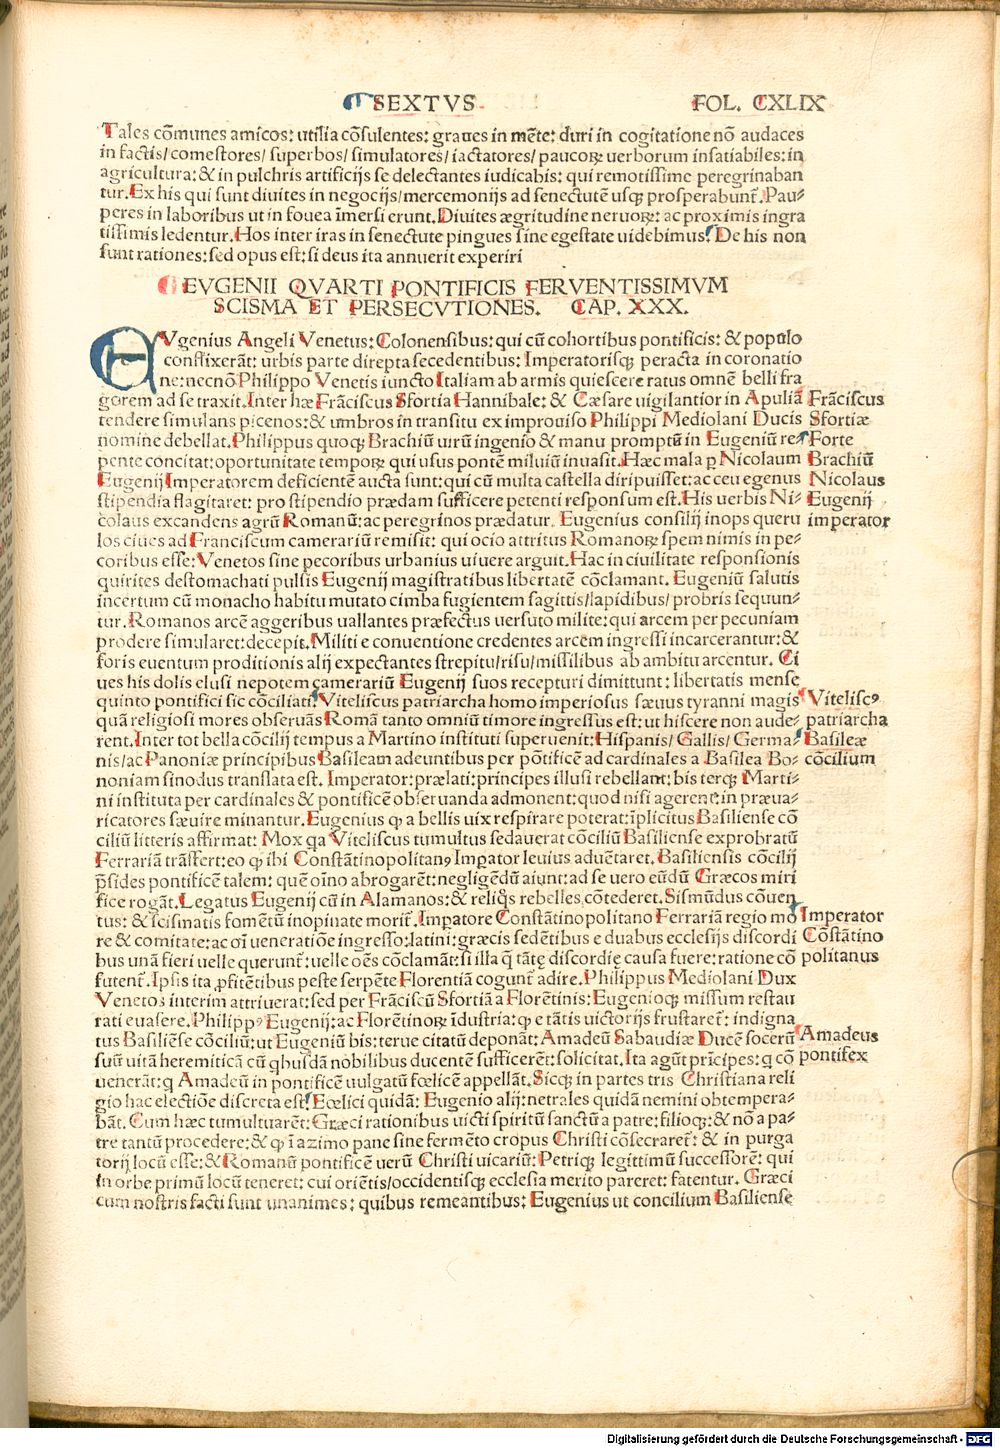 SEXTVS. FOL. CXLIX
Tales cōmunes amicos: utilia cōsulentes: graues in mēte: duri in cogitatione nō audaces
in factis/comestores/ superbos/ simulatores/ iactatores/ paucoꝝ uerborum insatiabiles: in
agricultura: & in pulchris artificijs se delectantes iudicabis: qui remotissime peregrinaban
tur. Ex his qui sunt diuites in negocijs/mercemonijs ad senectutē usqꝫ prosperabunt̄. Pau⸗
peres in laboribus ut in fouea īmersi erunt. Diuites ægritudine neruoꝝ: ac proximis ingra
tissimis ledentur. Hos inter iras in senectute pingues sine egestate uidebimus. De his non
sunt rationes: sed opus est: si deus ita annuerit experiri
EVGENII QVARTI PONTIFICIS FERVENTISSIMVM
SCISMA ET PERSECVTIONES. CAP. XXX.
EVgenius Angeli Venetus: Colonensibus: qui cū cohortibus pontificis: & populo
conflixerāt: urbis parte direpta secedentibus: Imperatorisqꝫ peracta in coronatio
ne: necnō Philippo Venetis iuncto Italiam ab armis quiescere ratus omnē belli fra
gorem ad se traxit. Inter hæ Frāciscus Sfortia Hannibale: & Cæsare uigilantior in Apuliā
tendere simulans picenos: & umbros in transitu ex improuiso Philippi Mediolani Ducis
nomine debellat. Philippus quoqꝫ Brachiū uirū ingenio & manu promptū in Eugeniū re⸗
pente concitat: oportunitate tempoꝝ qui usus pontē miluiū inuasit. Hæc mala p Nicolaum
Eugenij Imperatorem deficientē aucta sunt: qui cū multa castella diripuisset: ac ceu egenus
stipendia flagitaret: pro stipendio prædam sufficere petenti responsum est. His uerbis Ni⸗
colaus excandens agrū Romanū: ac peregrinos prædatur. Eugenius consilij inops queru
los ciues ad Franciscum camerariū remisit: qui ocio attritus Romanoꝝ spem nimis in pe⸗
coribus esse: Venetos sine pecoribus urbanius uiuere arguit. Hac inciuilitate responsionis
quirites destomachati pulsis Eugenij magistratibus libertatē cōclamant. Eugeniū salutis
incertum cū monacho habitu mutato cimba fugientem sagittis/lapidibus/ probris sequun⸗
tur. Romanos arcē aggeribus uallantes præfectus uersuto milite: qui arcem per pecuniam
prodere simularet: decepit. Militi e conuentione credentes arcem ingressi incarcerantur: &
foris euentum proditionis alij expectantes strepitu/risu/missilibus ab ambitu arcentur. Ci
ues his dolis elusi nepotem camerariū Eugenij suos recepturi dimittunt: libertatis mense
quinto pontifici sic cōciliati. Viteliscus patriarcha homo imperiosus sæuus tyranni magis
quā religiosi mores obseruās Romā tanto omniū timore ingressus est: ut hiscere non aude⸗
rent. Inter tot bella cōcilij tempus a Martino instituti superuenit: Hispanis/ Gallis/ Germa⸗
nis/ac Panoniæ principibus Basileam adeuntibus per pōtificē ad cardinales a Basilea Bo⸗
noniam sinodus translata est. Imperator: prælati: principes illusi rebellant: bis terqꝫ Marti⸗
ni instituta per cardinales & pontificē obseruanda admonent: quod nisi agerent: in præua⸗
ricatores sæuire minantur. Eugenius ꝙ a bellis uix respirare poterat: īplicitus Basiliense cō
ciliū litteris affirmat: Mox qa Viteliscus tumultus sedauerat cōciliū Basiliense exprobratū
Ferrariā trāsfert: eo ꝙ ibi Constātinopolitanꝰ Impator leuius aduētaret. Basiliensis cōcilij
p̄sides pontificē talem: quē oīno abrogarēt: negligēdū aiunt: ad se uero eūdū Græcos miri
fice rogāt. Legatus Eugenij cū in Alamanos: & reliq̄s rebelles cōtederet. Sismūdus cōuen
tus: & scismatis fomētū inopinate morit̄. Impatore Constātinopolitano Ferrariā regio mo
re & comitate: ac oī ueneratiōe ingresso: latini: græcis sedētibus e duabus ecclesijs discordi
bus unā fieri uelle querunt̄: uelle oēs cōclamāt: si illa q̄ tātę discordię causa fuere: ratione cō
futent̄. Ipsis ita ꝓfitētibus peste serpēte Florentiā cogunt̄ adire. Philippus Mediolani Dux
Venetos interim attriuerat: sed per Frāciscū Sfortiā a Florētinis: Eugenioqꝫ missum restau
rati euasere. Philippꝰ Eugenij: ac Florētinoꝝ īdustria: ꝙ e tātis uictorijs frustaret̄: indigna
tus Basiliēse cōciliū: ut Eugeniū bis: terue citatū deponāt: Amadeū Sabaudiæ Ducē socerū
suū uitā heremiticā cū qbusdā nobilibus ducentē sufficerēt: solicitat. Ita agūt prīcipes: q cō
uenerāt: q Amadeū in pontificē uulgatū fœlicē appellāt. Sicqꝫ in partes tris Christiana reli
gio hac electiōe discreta est. Fœlici quidā: Eugenio alij: netrales quidā nemini obtempera⸗
bāt. Cum hæc tumultuarēt: Græci rationibus uicti spiritū sanctū a patre: filioqꝫ: & nō a pa⸗
tre tantū procedere: & ꝙ ī azimo pane sine fermēto cropus Christi cōsecraret̄: & in purga
torij locū esse: & Romanū pontificē uerū Christi uicariū: Petriqꝫ legittimū successorē: qui
in orbe primū locū teneret: cui oriētis/occidentisqꝫ ecclesia merito pareret: fatentur. Græci
cum nostris facti sunt unanimes: quibus remeantibus: Eugenius ut concilium Basiliense
Frāciscus
Sfortiæ
Forte
Brachiū
Nicolaus
Eugenij
imperator
Viteliscꝰ
patriarcha
Basileæ
cōcilium
Imperator
Cōstātino
politanus
Amadeus
pontifex
Digitalisierung gefördert durch die Deutsche Forschungsgemeinschaft - DFG